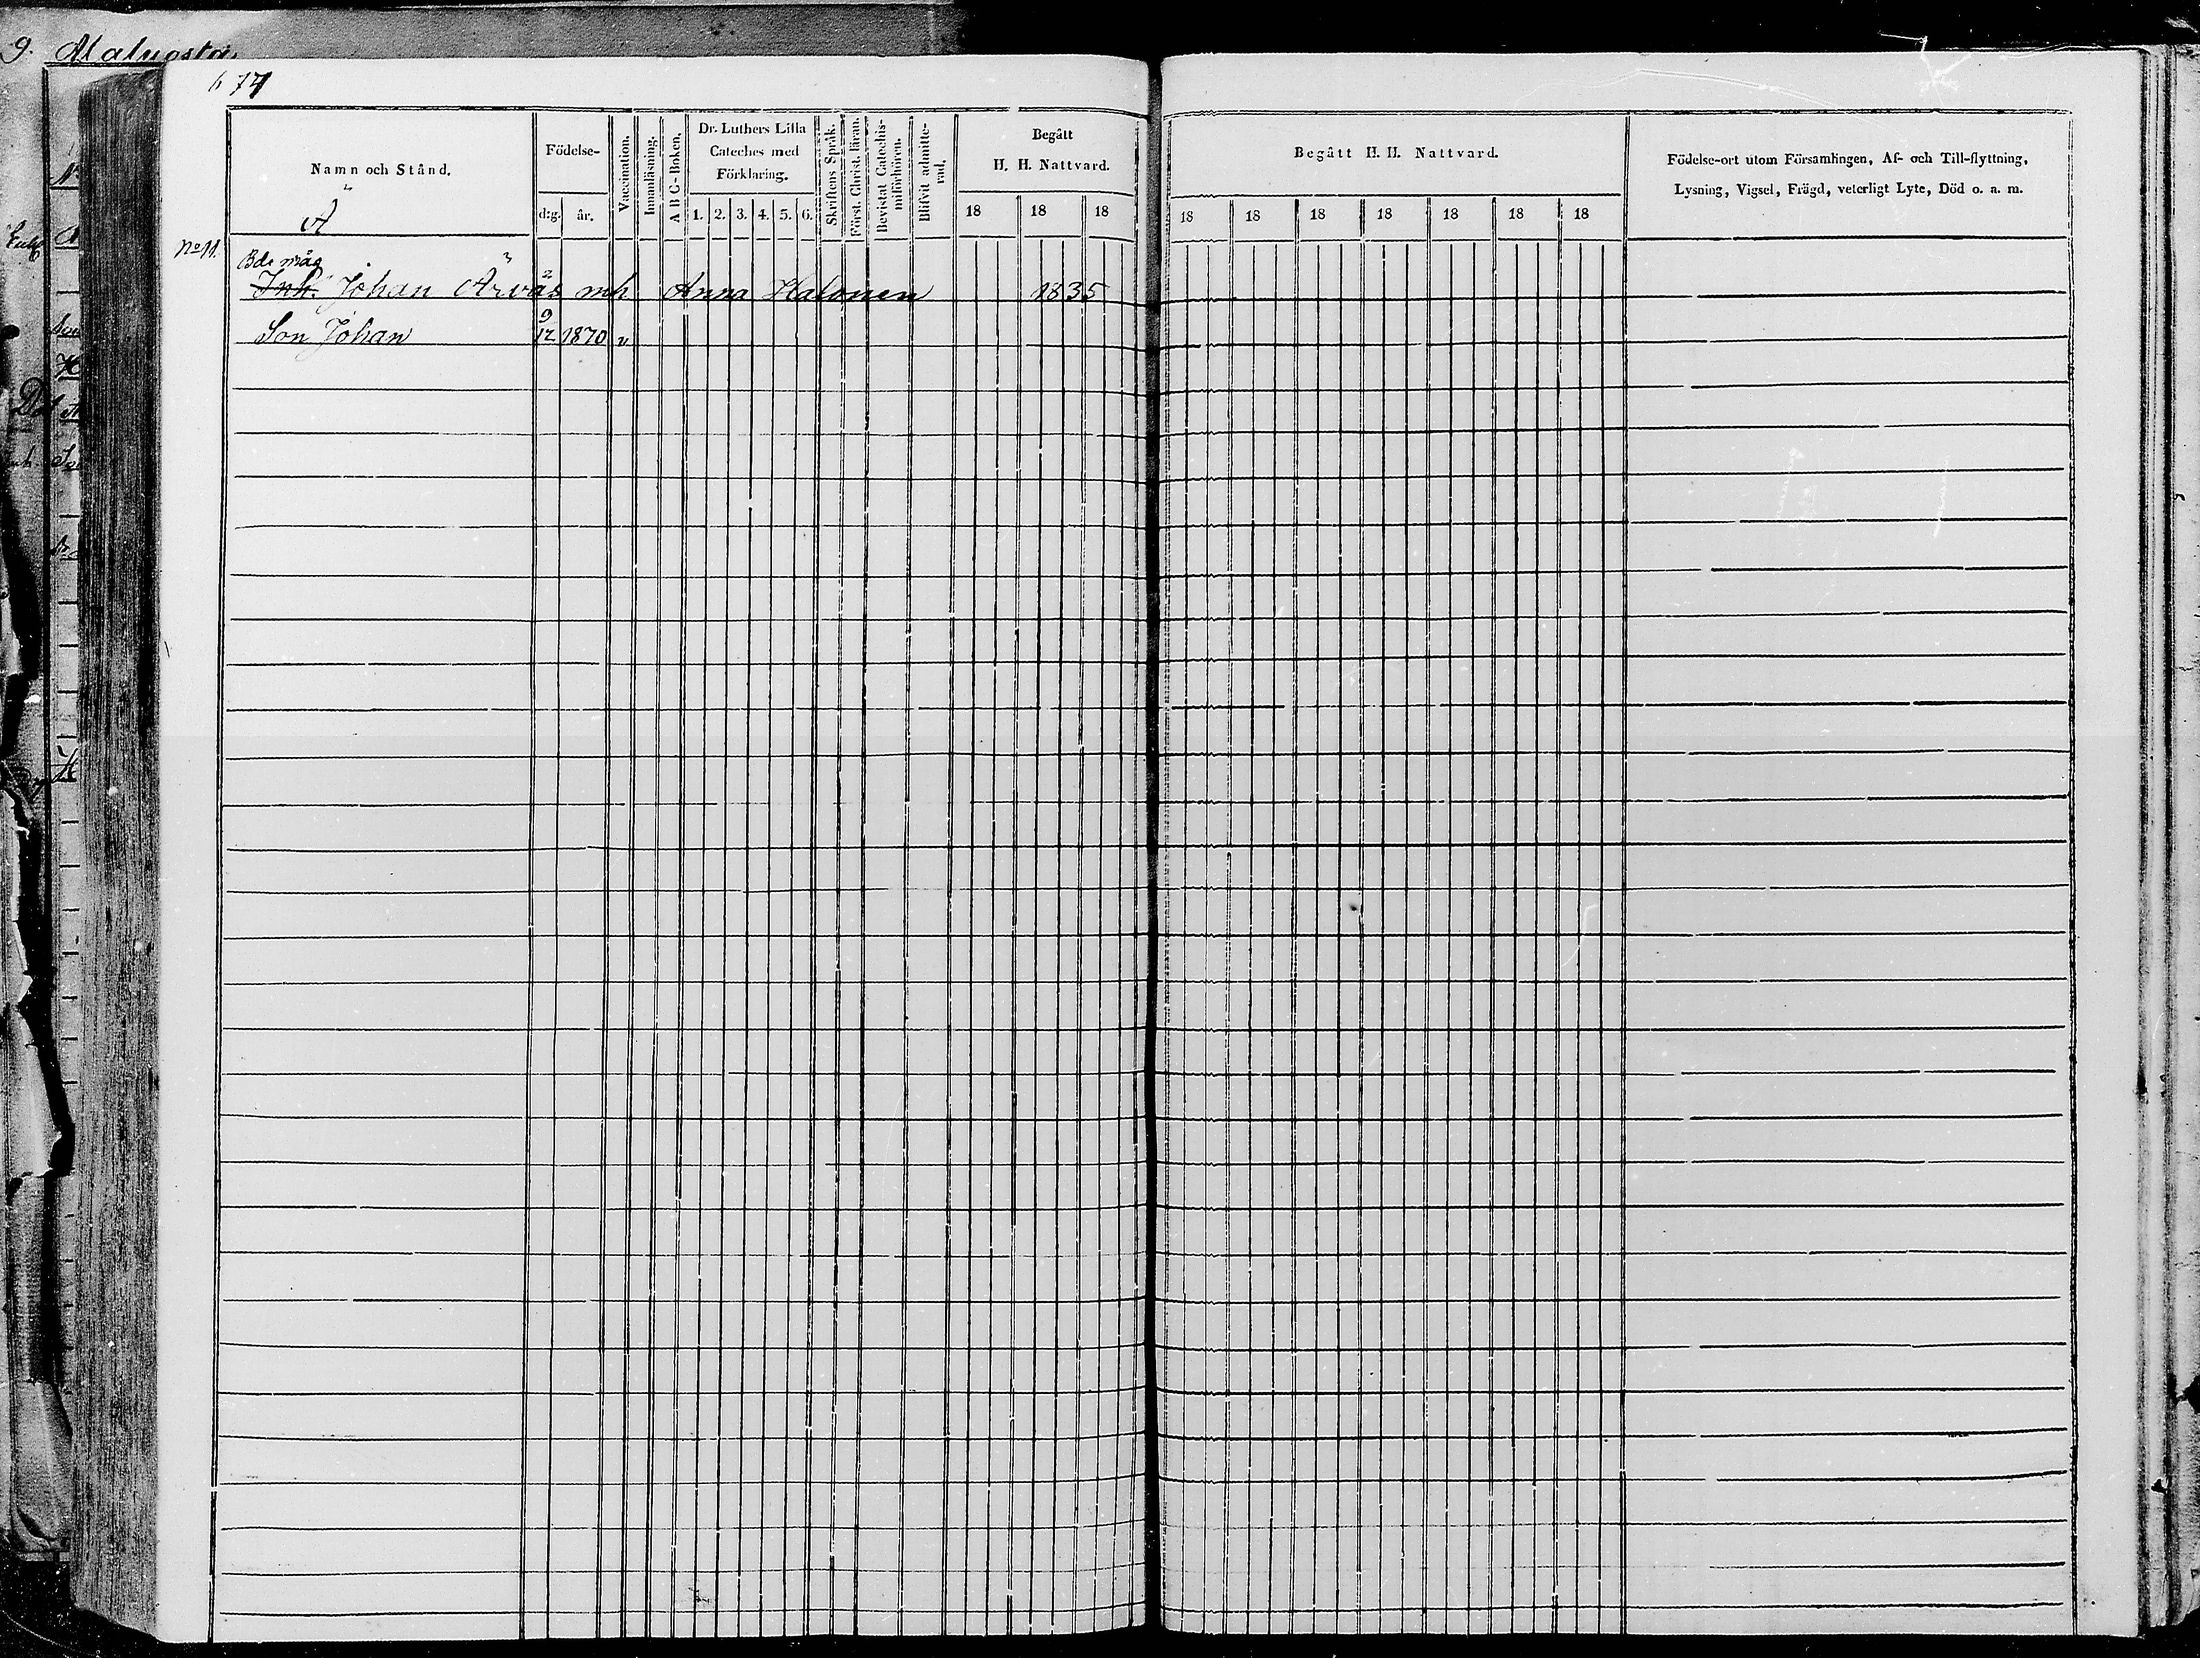 9. Maluosta
674
Namn och Stånd.
Ä
Födelse-
d:g. år.
Vaccination.
Innanläsning.
A B C-Boken.
Dr. Luthers Lilla
Cateches med
Förklaring.
1. 2. 3. 4. 5. 6.
Skriftens Språk.
Först. Christ. läran.
Bevistat Catechis-
miförhören.
Blifvit admitte-
rad.
Begått
H. H. Nattvard.
18 18 18
Begått H. H. Nattvard.
18 18 18 18 18 18 18
Födelse-ort utom Församlingen, Af- och Till-flyttning,
Lysning, Vigsel, Frägd, veterligt Lyte, Död o. a. m.
No 11.
Bde måg
Inh. Johan Ärväs mh Anna Halonen 1835
Son Johan 9/12 1870 v